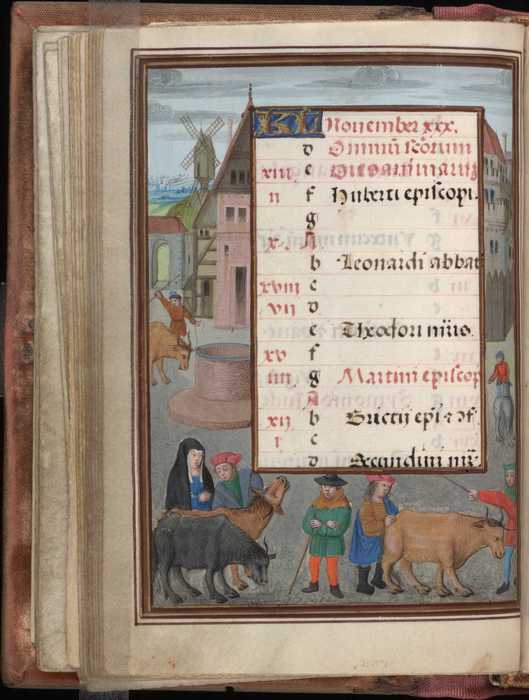 KL Nouember xxx.
d Omniū scōrum
xiii e
ii f Huberti episcopi.
g
x. A
b Leonardi abbat
xviii c
vii d
e Theodori m̄ris.
xv f
iiii g Martini episcop
A
xii b Brictii epī
i c
d Secundini